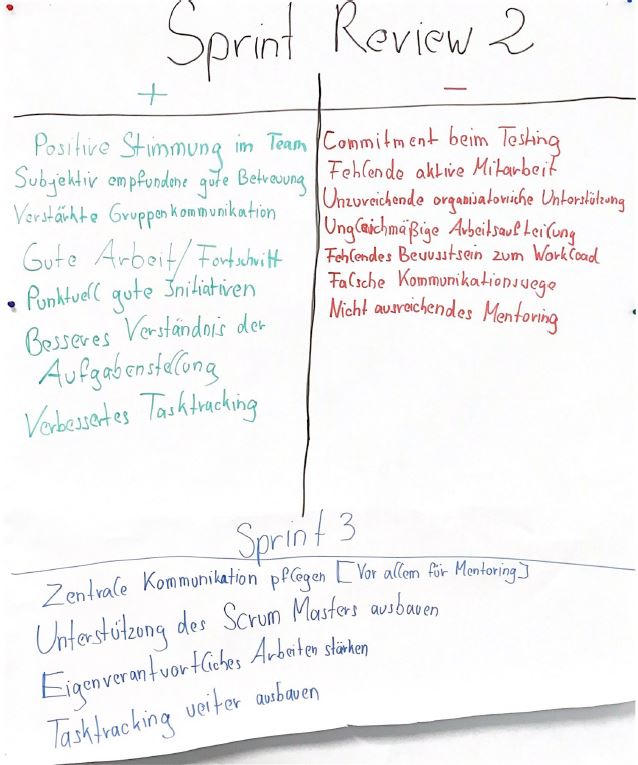 Sprint Review 2
+
Positive Stimmung im Team
Subjektiv empfundene gute Betreuung
Verstärkte Gruppenkommunikation
Gute Arbeit/Fortschritt
Punktuell gute Initiativen
Besseres Verständnis der
Aufgabenstellung
Verbessertes Tasktracking
−
Commitment beim Testing
Fehlende aktive Mitarbeit
Unzureichende organisatorische Unterstützung
Ungleichmäßige Arbeitsaufteilung
Fehlendes Bewusstsein zum Workload
Falsche Kommunikationswege
Nicht ausreichendes Mentoring
Sprint 3
Zentrale Kommunikation pflegen [Vor allem für Mentoring]
Unterstützung des Scrum Masters ausbauen
Eigenverantwortliches Arbeiten stärken
Tasktracking weiter ausbauen